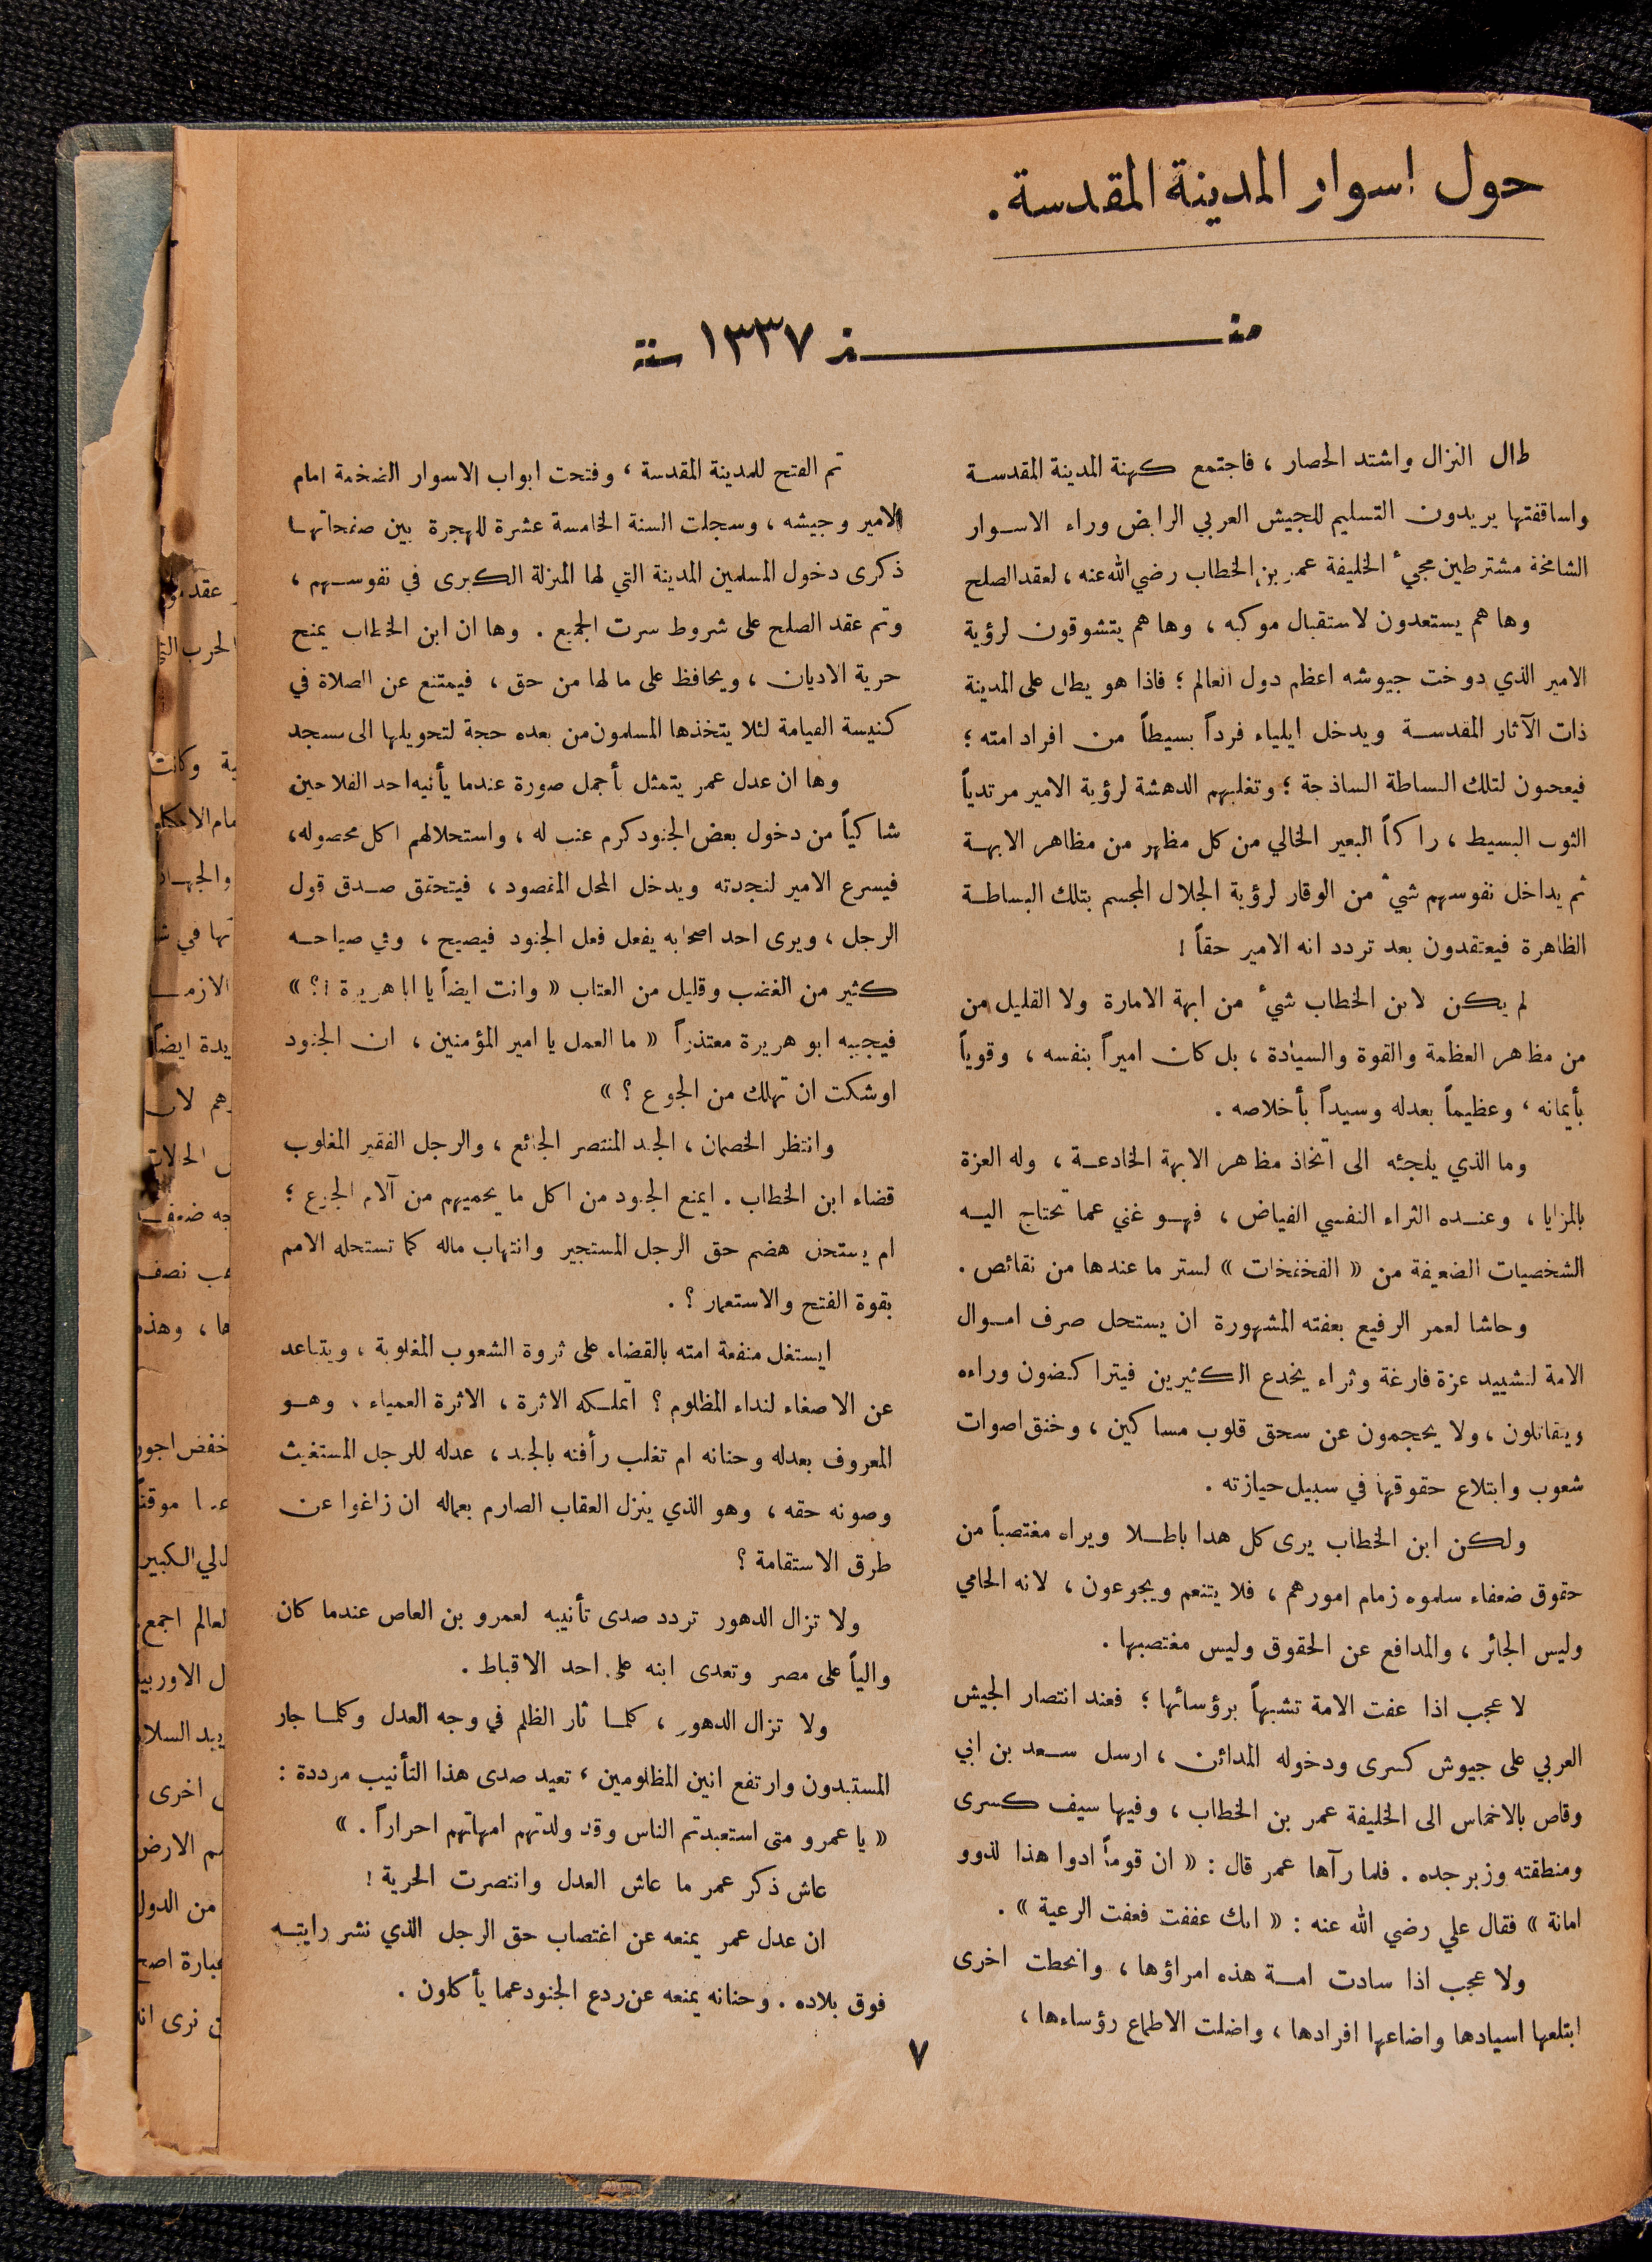 حول اسوار المدينة المقدسة.
منـــــــذ ١٣٣٧ سنة
طال النزال واشتد الحصار ، فاجتمع كهنة المدينة المقدسة
واساقفتها يريدون التسليم للجيش العربي الرابض وراء الاسوار
الشامخة مشترطين مجيء الخليفة عمر بن الخطاب رضي الله عنه ، لعقد الصلح
وها هم يستعدون لاستقبال موكبه ، وها هم يتشوقون لرؤية
الامير الذي دوخت جيوشه اعظم دول العالم ؛ فاذا هو يطل على المدينة
ذات الآثار المقدسة ويدخل ايلياء فرداً بسيطاً من افراد امته ؛
فيعجبون لتلك البساطة الساذجة ؛ وتغلبهم الدهشة لرؤية الامير مرتدياً
الثوب البسيط ، راكباً البعير الخالي من كل مظهر من مظاهر الابهة
ثم يداخل نفوسهم شيء من الوقار لرؤية الجلال المجسم بتلك البساطة
الظاهرة فيعتقدون بعد تردد انه الامير حقاً !
لم يكن لابن الخطاب شيء من ابهة الامارة ولا القليل من
من مظاهر العظمة والقوة والسيادة ، بل كان اميراً بنفسه ، وقوياً
بأيمانه ، وعظيماً بعدله وسيداً بأخلاصه .
وما الذي يلجئه الى اتخاذ مظاهر الابهة الخادعة ، وله العزة
بالمزايا ، وعنده الثراء النفسي الفياض ، فهو غني عما تحتاج اليه
الشخصيات الضعيفة من « الفخفخات » لستر ما عندها من نقائص .
وحاشا لعمر الرفيع بعفته المشهورة ان يستحل صرف اموال
الامة لتشييد عزة فارغة وثراء يخدع الكثيرين فيتراكضون وراءه
ويتقاتلون ، ولا يحجمون عن سحق قلوب مساكين ، وخنق اصوات
شعوب وابتلاع حقوقها في سبيل حيازته .
ولكن ابن الخطاب يرى كل هدا باطلا ويراه مغتصباً من
حقوق ضعفاء سلموه زمام امورهم ، فلا يتنعم ويجوعون ، لانه الحامي
وليس الجائر ، والمدافع عن الحقوق وليس مغتصبها .
لا عجب اذا عفت الامة تشبهاً برؤسائها ؛ فعند انتصار الجيش
العربي على جيوش كسرى ودخوله المدائن ، ارسل سعد بن ابي
وقاص بالاخماس الى الخليفة عمر بن الخطاب ، وفيها سيف كسرى
ومنطقته وزبرجده . فلما رآها عمر قال : « ان قوماً ادوا هذا لذوو
امانة » فقال علي رضي الله عنه : « انك عففت فعفت الرعية » .
ولا عجب اذا سادت امة هذه امراؤها ، وانحطت اخرى
ابتلعها اسيادها واضاعها افرادها ، واضلت الاطماع رؤساءها ،
تم الفتح للمدينة المقدسة ، وفتحت ابواب الاسوار الضخمة امام
الامير وجيشه ، وسجلت السنة الخامسة عشرة للهجرة بين صفحاتها
ذكرى دخول المسلمين المدينة التي لها المنزلة الكبرى في نفوسهم ،
وتم عقد الصلح على شروط سرت الجميع . وها ان ابن الخطاب يمنح
حرية الاديان ، ويحافظ على ما لها من حق ، فيمتنع عن الصلاة في
كنيسة القيامة لئلا يتخذها المسلمون من بعده حجة لتحويلها الى مسجد
وها ان عدل عمر يتمثل بأجمل صورة عندما يأتيه احد الفلاحين
شاكياً من دخول بعض الجنود كرم عنب له ، واستحلالهم اكل محصوله ،
فيسرع الامير لنجدته ويدخل المحل المقصود ، فيتحقق صدق قول
الرجل ، ويرى احد اصحابه يفعل فعل الجنود فيصيح ، وفي صياحه
كثير من الغضب وقليل من العتاب « وانت ايضاً يا ابا هريرة !؟ »
فيجيبه ابو هريرة معتذراً « ما العمل يا امير المؤمنين ، ان الجنود
اوشكت ان تهلك من الجوع ؟ »
وانتظر الخصمان ، الجند المنتصر الجائع ، والرجل الفقير المغلوب
قضاء ابن الخطاب . ايمنع الجنود من اكل ما يحميهم من آلام الجوع ؛
ام يستحل هضم حق الرجل المستجير وانتهاب ماله كما تستحله الامم
بقوة الفتح والاستعمار ؟ .
ايستغل منفعة امته بالقضاء على ثروة الشعوب المغلوبة ، ويتباعد
عن الاصغاء لنداء المظلوم ؟ اتملكه الاثرة ، الاثرة العمياء ، وهو
المعروف بعدله وحنانه ام تغلب رأفته بالجند ، عدله للرجل المستغيث
وصونه حقه ، وهو الذي ينزل العقاب الصارم بعماله ان زاغوا عن
طرق الاستقامة ؟
ولا تزال الدهور تردد صدى تأنيبه لعمرو بن العاص عندما كان
والياً على مصر وتعدى ابنه على احد الاقباط .
ولا تزال الدهور ، كلما ثار الظلم في وجه العدل وكلما جار
المستبدون وارتفع انين المظلومين ، تعيد صدى هذا التأنيب مرددة :
« يا عمرو متى استعبدتم الناس وقد ولدتهم امهاتهم احراراً . »
عاش ذكر عمر ما عاش العدل وانتصرت الحرية !
ان عدل عمر يمنعه عن اغتصاب حق الرجل الذي نشر رايته
فوق بلاده . وحنانه يمنعه عن ردع الجنود عما يأكلون .
٧
عقد
الحرب التي
ية وكانت
والجهاد
تها في
يدة ايضاً
هم لان
الحالات
نصف
ها ، وهذه
خفض اجور
موقتاً
الكبير
لعالم اجمع
ل الاوربية
يبد السلا
اخرى
م الارض
من الدول
عبارة اصح
ن نرى انا